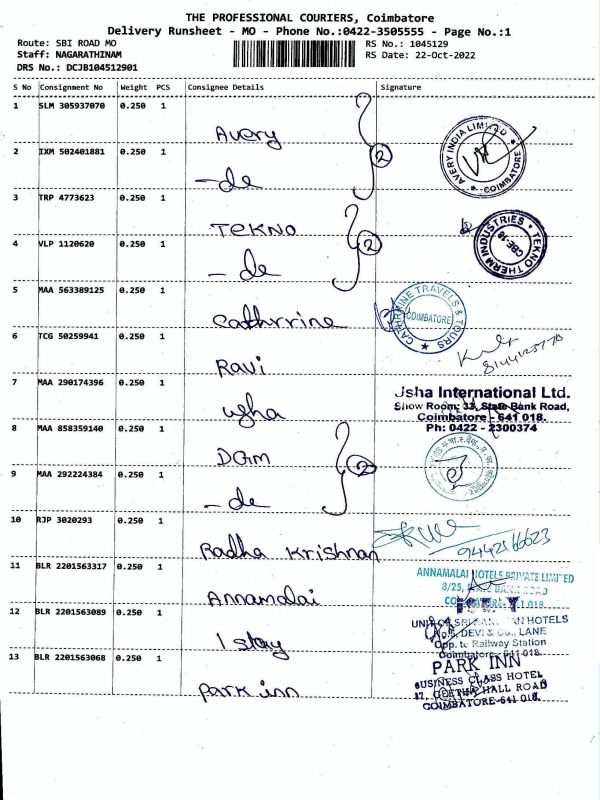 THE PROFESSIONAL COURIERS, Coimbatore
Delivery Runsheet - MO - Phone No.:0422-3505555 - Page No.:1
Route: SBI ROAD MO
RS No.: 1045129
Staff: NAGARATHINAM
RS Date: 22-Oct-2022
DRS No.: DCJB104512901
S No Consignment No Weight PCS Consignee Details Signature
1 SLM 305937070 0.250 1 Avery
AVERY INDIA LIMITED COIMBATORE
2 IXM 502401881 0.250 1 -de
2
3 TRP 4773623 0.250 1 TEKNO
TEKNO THERM INDUSTRIES CBE-18
4 VLP 1120620 0.250 1 -de
2
5 MAA 563389125 0.250 1 Cathrrine
TRAVELS & TOURS
COIMBATORE
6 TCG 50259941 0.250 1 Ravi
7 MAA 290174396 0.250 1 usha
Usha International Ltd.
Show Room: 33, State Bank Road,
Coimbatore - 641 018.
Ph: 0422 - 2300374
8 MAA 858359140 0.250 1 DGM
9 MAA 292224384 0.250 1 -de
2
10 RJP 3020293 0.250 1 Radha Krishnan
9442166623
11 BLR 2201563317 0.250 1 Annamalai
ANNAMALAI HOTELS PRIVATE LIMITED
8/25, STATE BANK ROAD
12 BLR 2201563089 0.250 1 1 stay
HOTELS
DEVI & Co., LANE
Opp. to Railway Station
Coimbatore- 641 018.
13 BLR 2201563068 0.250 1 park inn
PARK INN
BUSINESS CLASS HOTEL
HALL ROAD
COIMBATORE-641 018.